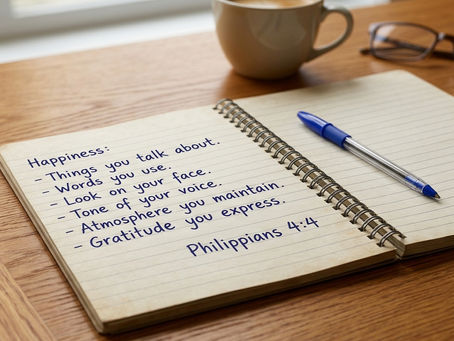 Happiness:
- Things you talk about.
- Words you use.
- Look on your face.
- Tone of your voice.
- Atmosphere you maintain.
- Gratitude you express.
Philippians 4:4